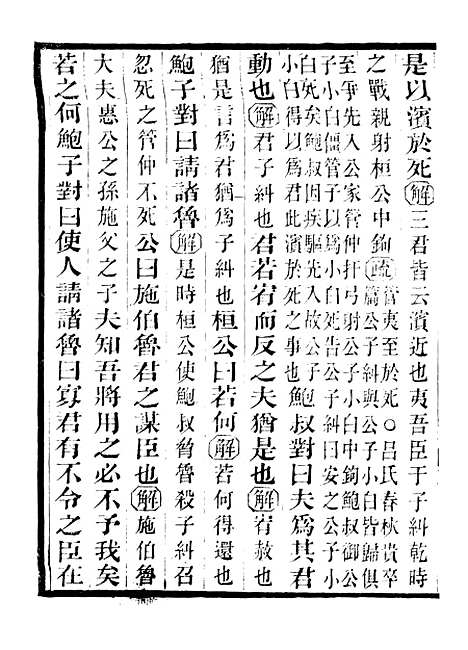 是以濱於死解三君皆云濱近也夷吾臣于子糾乾時
之戰親射桓公中鉤疏管夷至於死○呂氏春秋貴卒
篇公子糾與公子小白皆歸俱
至爭先入公家管仲扞弓射公子小白中鉤鮑叔御公
子小白僵管子以爲小白死告公子糾曰安之公子小
白死矣鮑叔因疾驅先入故公子
小白得以爲君此濱於死之事也鮑叔對曰夫爲其君
動也解君子糾也君若宥而反之夫猶是也解宥赦也
猶是言爲君猶爲子糾也桓公曰若何解若何得還也
鮑子對曰請諸魯解是時桓公使鮑叔脅魯殺子糾召
忽死之管仲不死公曰施伯魯君之謀臣也解施伯魯
大夫惠公之孫施父之子夫知吾將用之必不予我矣
若之何鮑子對曰使人請諸魯曰寡君有不令之臣在